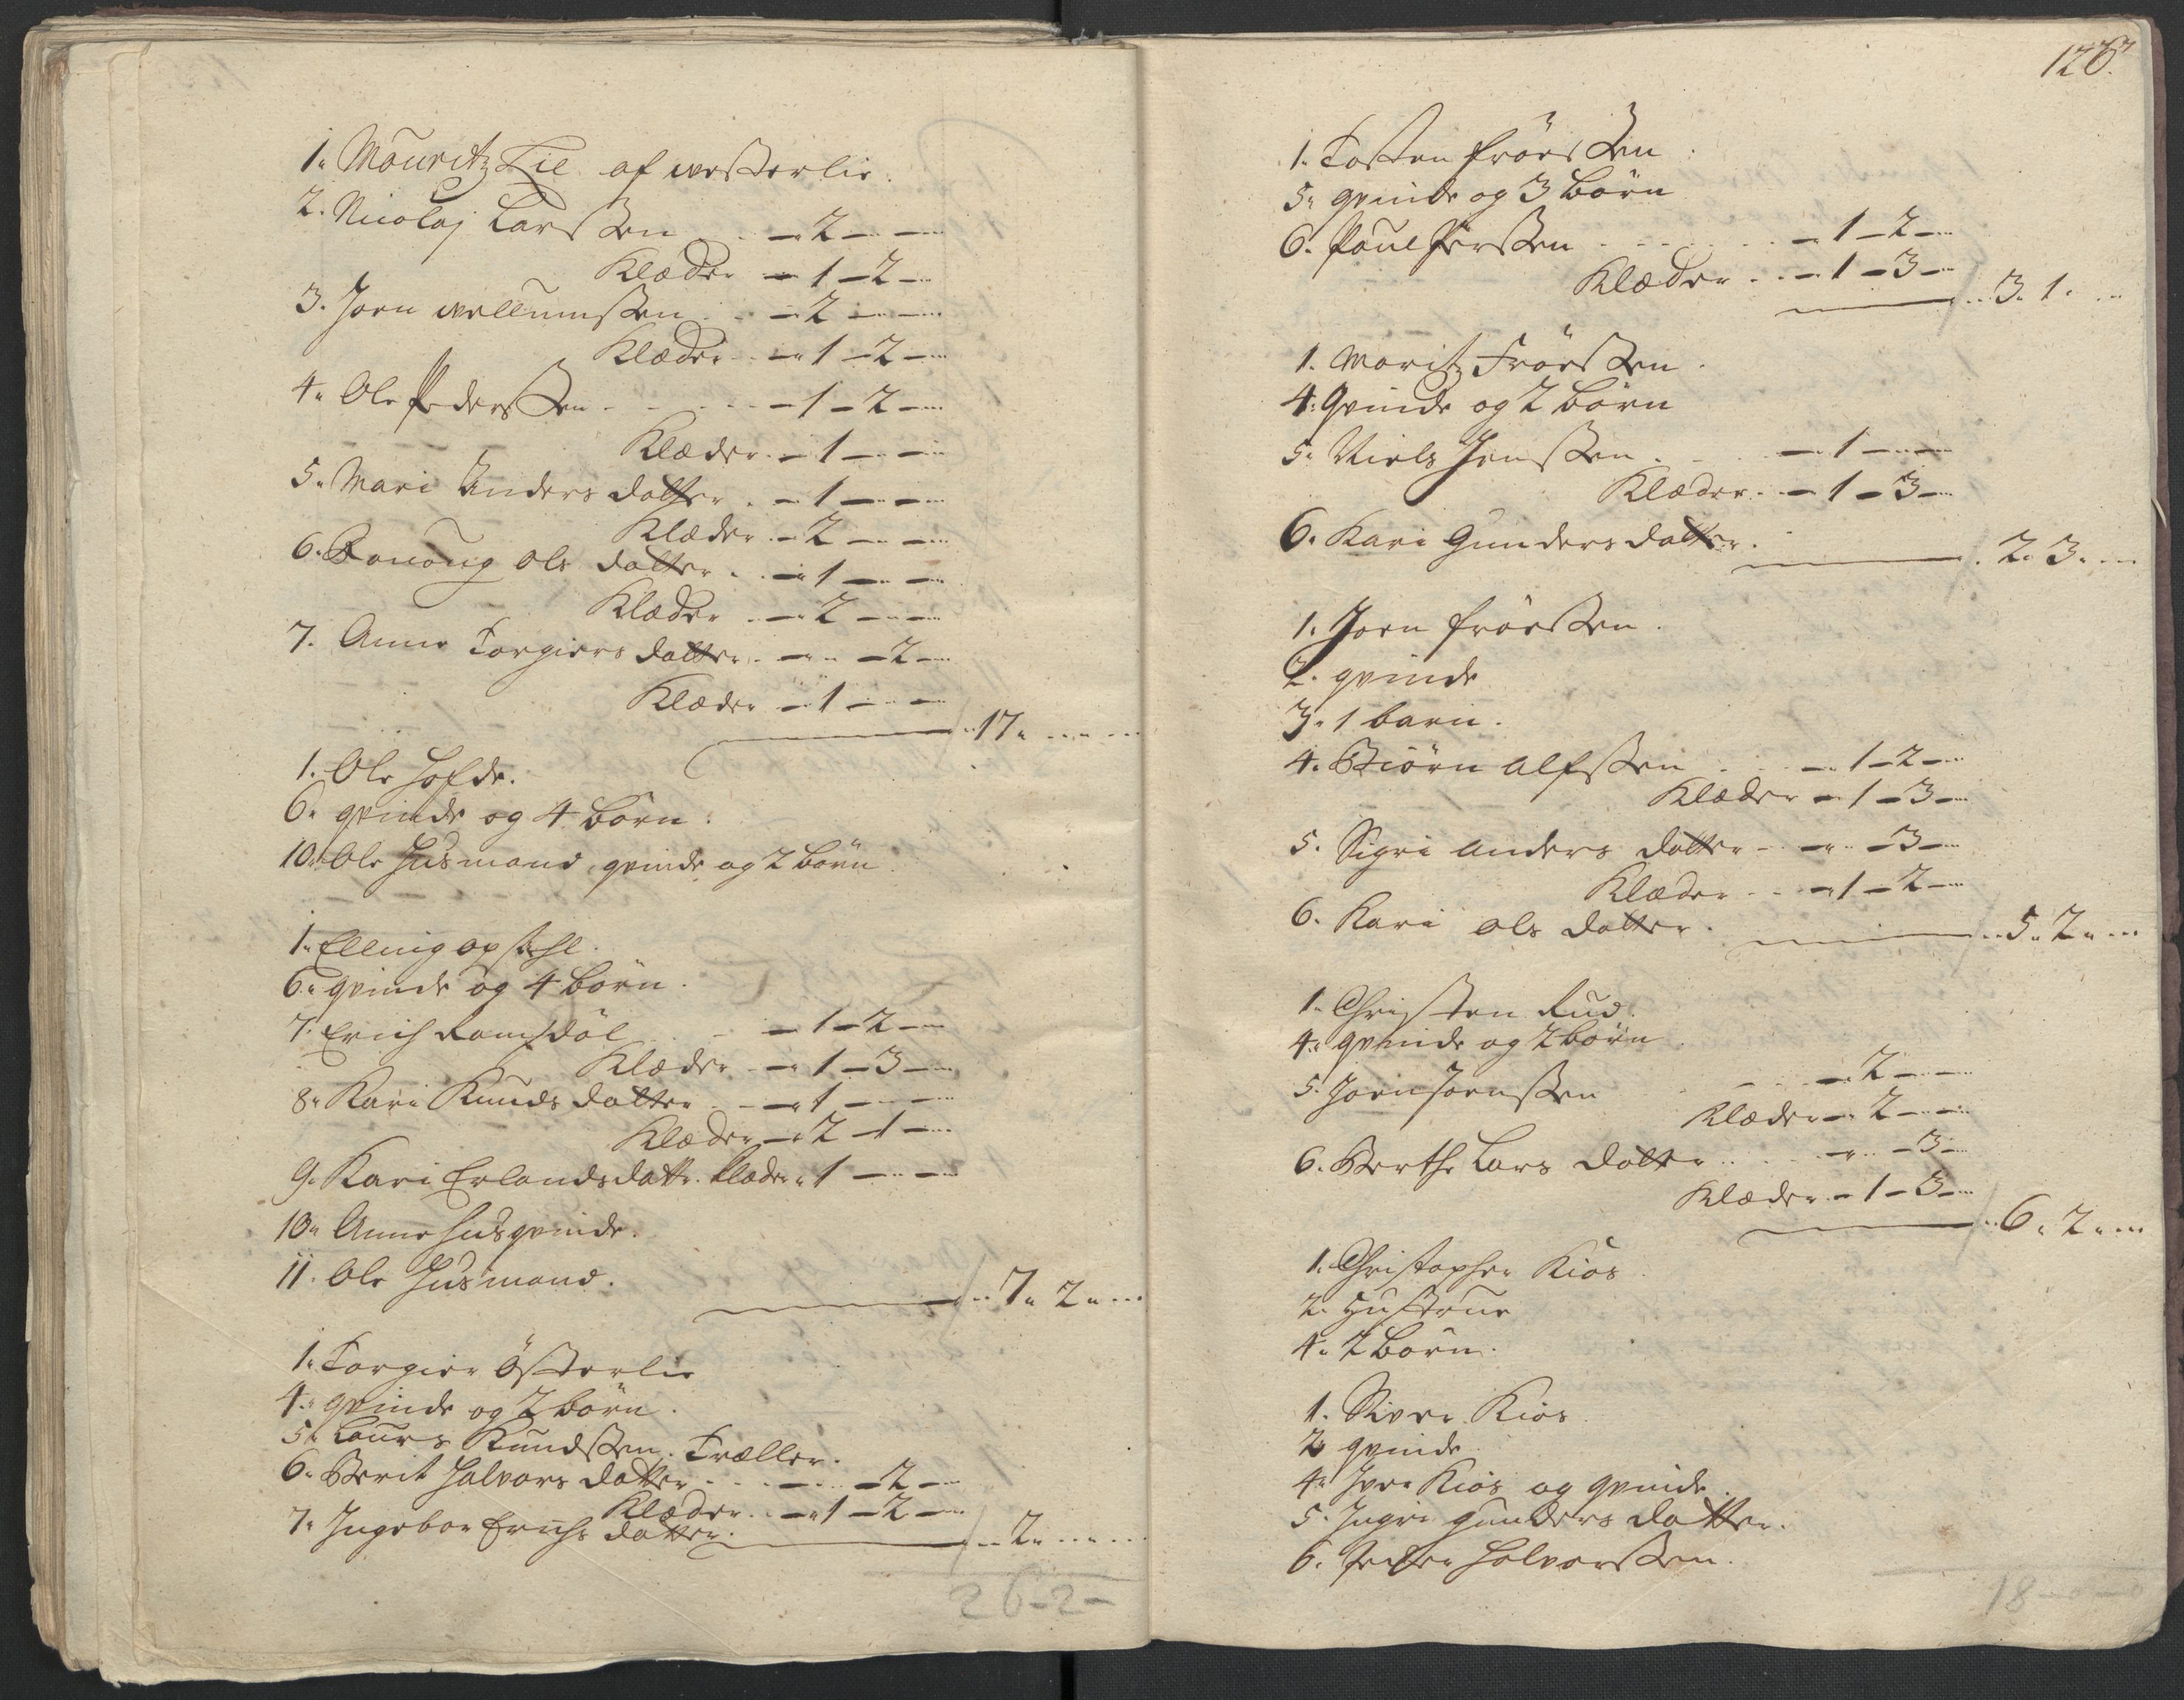 1. Mouritz Lie af westerlie.
2. Nicolaj Larssen - 2 - -
Klæder - 1 - 2 -
3. Joen wellumssen - 2 - -
Klæder - 1 - 2 -
4. Ole Pederssen - 1 - 2 -
Klæder - 1 - -
5. Mari Anders datter - 1 - -
Klæder - 2 - -
6. Ronoug Ols datter - 1 - -
Klæder - 2 - -
7. Anne Torgiers datter - - 2 -
Klæder - 1 - -
17. - -
1. Ole Hofde.
6. qvinde og 4 börn.
10. Ole Husmand, qvinde og 2 börn
1. Elling opstehl.
6. qvinde og 4 börn.
7. Erich Ramsdöl - 1 - 2 -
Klæder - 1 - 3 -
8. Kari Knuds datter - 1 - -
Klæder - 2 - 1 -
9. Kari Erlands datt. Klæder 1 - -
10. Anne husqvinde.
11. Ole Husmand.
7. 2. -
1. Torgier Österlie
4. qvinde og 2 börn.
5. Lours Knudssen. Træller.
6. Berit Halvors datter - - 2 -
Klæder - 1 - 2 -
7. Ingebor Erichs datter.
2. - -
26-2-
126.
1. Tosten Fröessen.
5. qvinde og 3 börn
6. Poul Perssen - 1 - 2 -
Klæder - 1 - 3 -
3. 1. -
1. Moritz Fröessen.
4. Qvinde og 2 börn
5. Niels Jenssen - 1 - -
Klæder - 1 - 3 -
6. Kari Gunders datter.
2. 3. -
1. Joen fröessen.
2. qvinde
3. 1 barn.
4. Biörn Alfssen - 1 - 2 -
Klæder - 1 - 3 -
5. Sigri Anders datter - - 3 -
Klæder - 1 - 2 -
6. Kari Ols datter.
5. 2. -
1. Christen Rud.
4. qvinde og 2 börn
5. Joen Joenssen - 2 - -
Klæder - 2 - -
6. Berthe Lars datter - - 3 -
Klæder - 1 - 3 -
6. 2. -
1. Christopher Kiös
2. Hustrue
4. 2 börn.
1. Siver Kiös
2. qvinde
4. Iver Kiös og qvinde.
5. Ingri Gunders datter.
6. Peder Halvorssen.
18-0-0